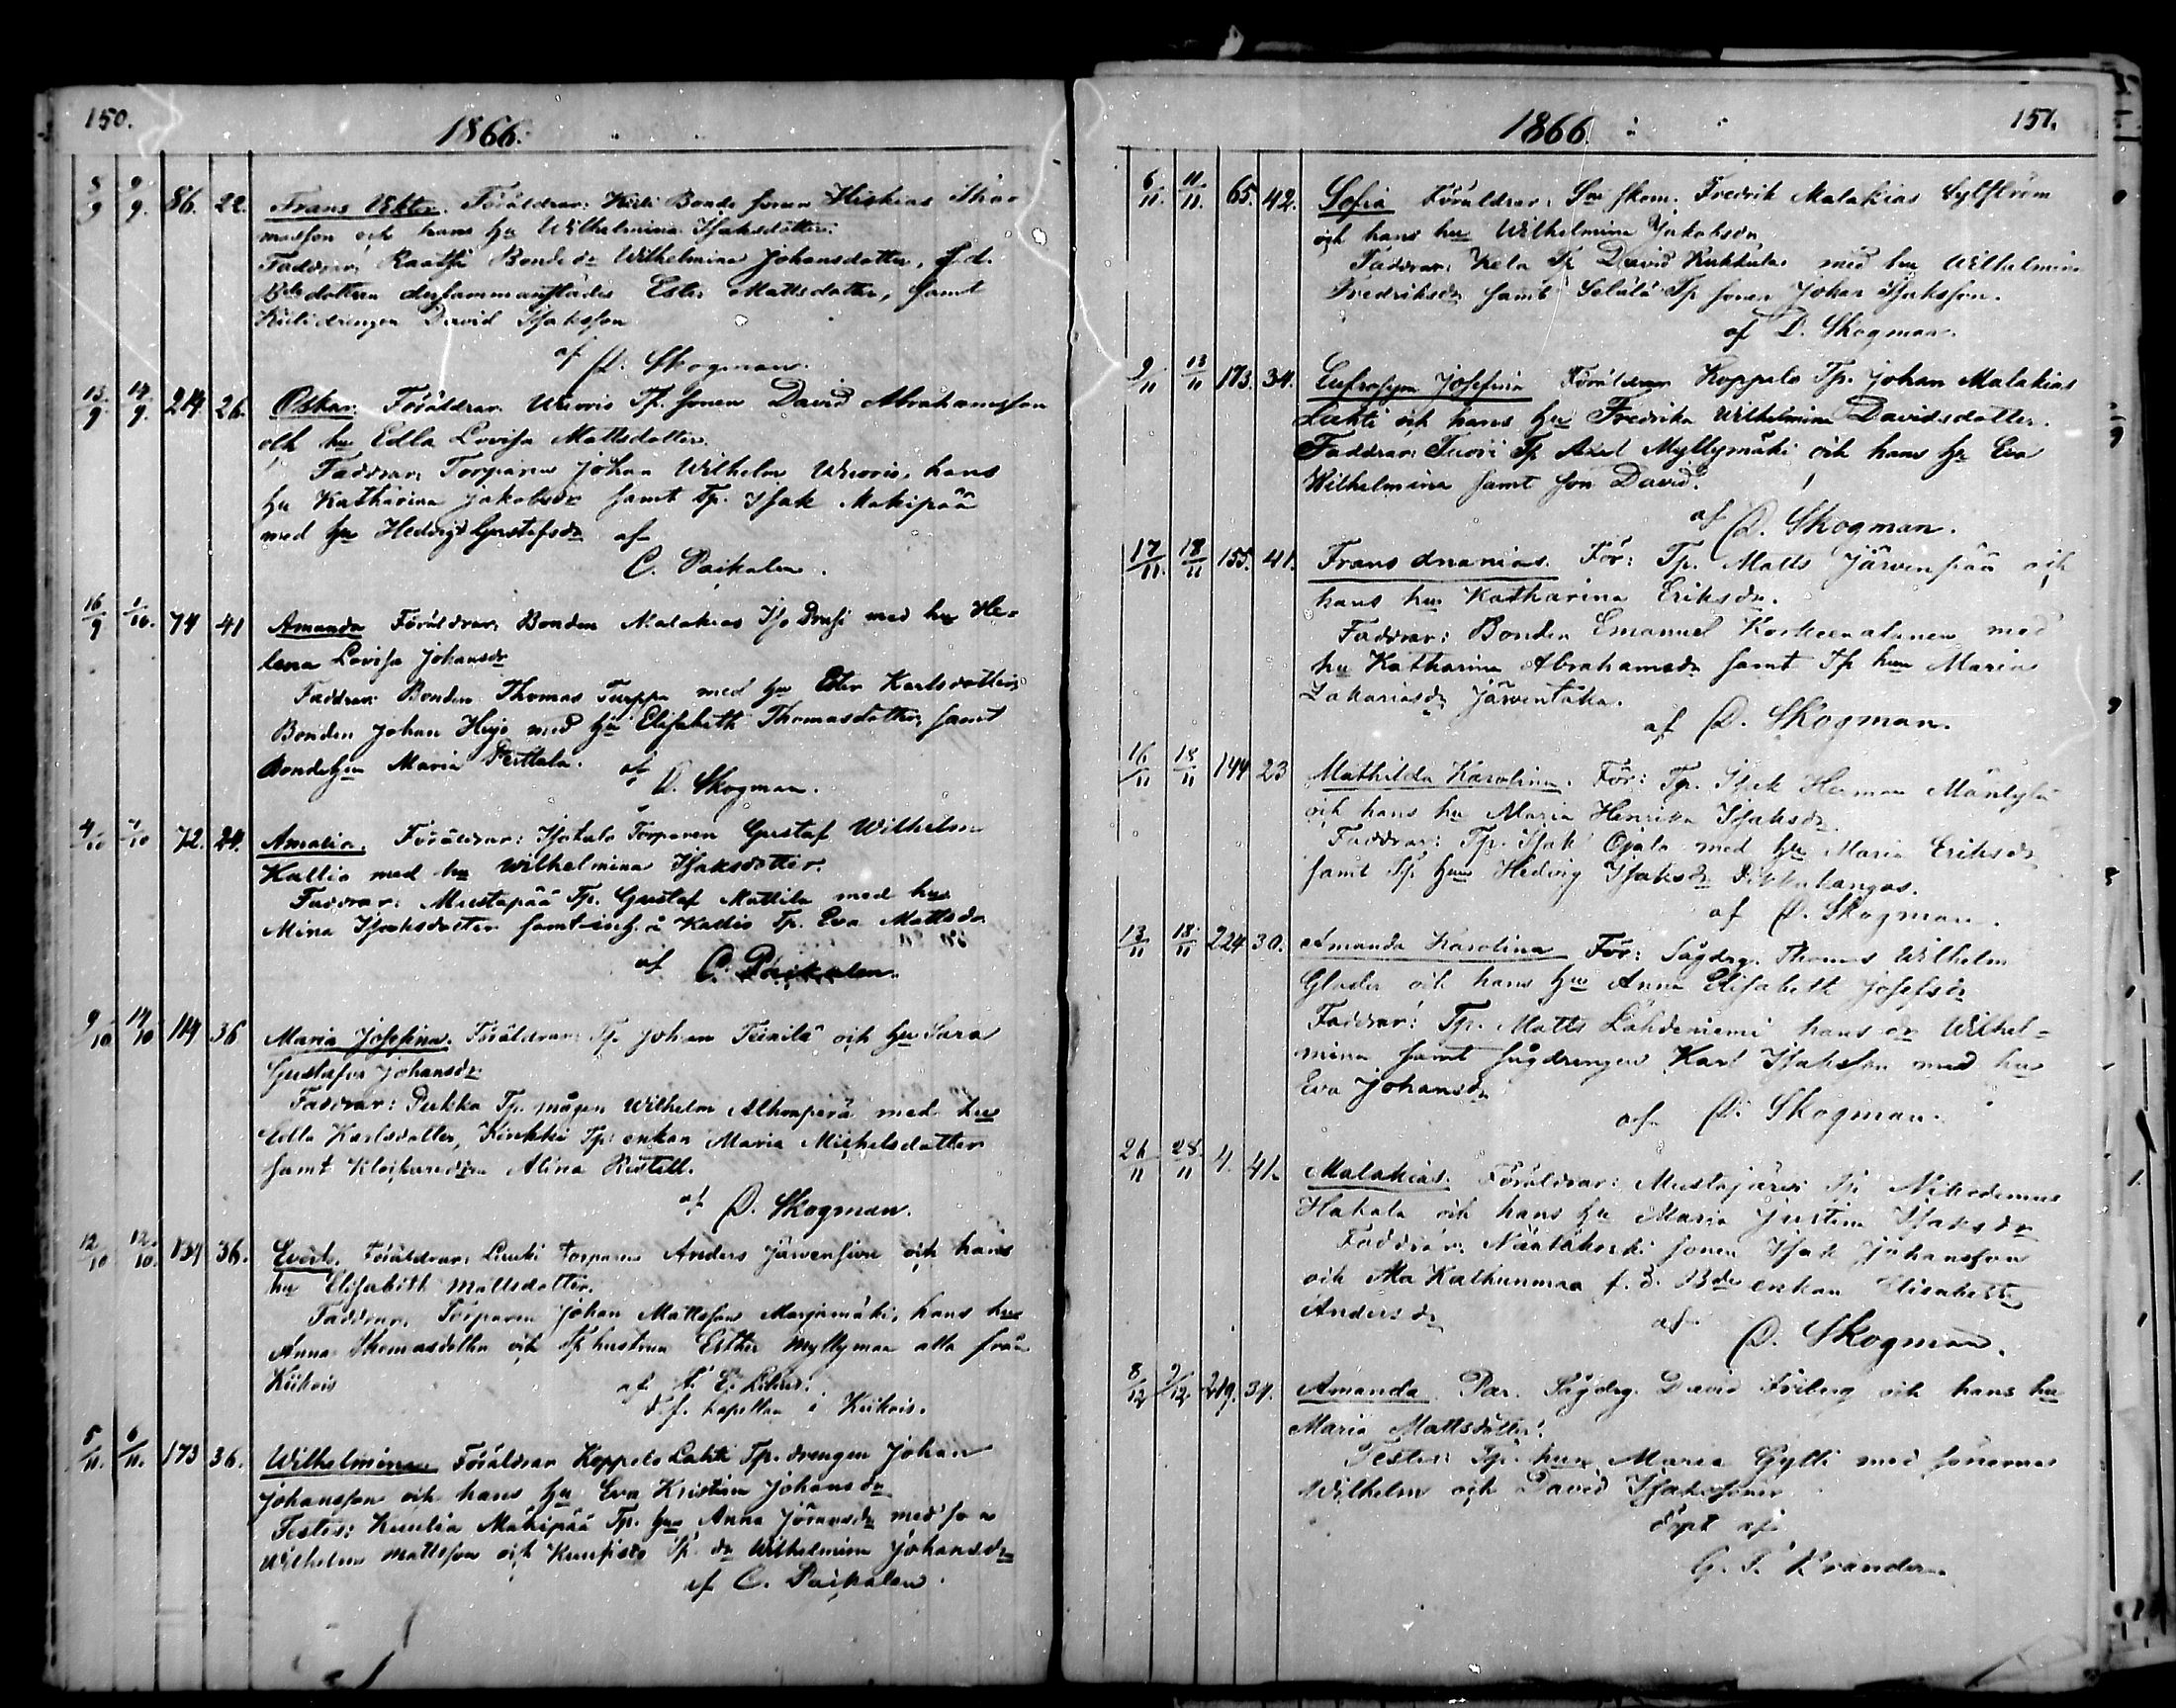 150.
1866.
8/9 9/9. 86. 22. Frans Viktor. Föräldrar: Bonde sonen Hiskias Tho-
masson och hans hu Wilhelmina Isaksdotter.
Faddrar: Bonde dr Wilhelmina Johansdotter, f.d.
Bde dottren dersammastädes Ester Mattsdotter, samt
drengen David Isaksson
af D. Skogman.
13/9 14/9. 214 26. Oskar. Föräldrar: Wuoris Tp. sonen David Abrahamsson
och hu Edla Lovisa Mattsdotter.
Faddrar: Torparen Johan Wilhelm Wuoris, hans
hu Katharina Jakobsdr samt Tp. Isak Makipää
med hu Hedvig Gustafsdr af
C. Paikalen.
16/9 1/10. 74 41 Amanda Föräldrar: Bonden Malakias Iso Prusi med hu He-
lena Lovisa Johansdr
Faddrar: Bonden Thomas Turppa med hu Ester Karlsdotter,
Bonden Johan Heijo med hu Elisabeth Thomasdotter, samt
Bondehu Maria Perttala. af
D. Skogman.
4/10 7/10 72. 24. Amalia. Föräldrar: Torparen Gustaf Wilhelm
Kallio med hu Wilhelmina Isaksdotter.
Faddrar: Mustapää Tp. Gustaf Mattila med hu
Mina Isaksdotter samt inh. å Kallio Tp. Eva Mattsdr
af C. Paikalen.
9/10 14/10 114 36 Maria Josefina. Föräldrar: Tp. Johan Teinilä och hu Sara
Gustafva Johansdr
Faddrar: Pukka Tp. mågen Wilhelm Alhonperä med hu
Edla Karlsdotter, Kinkki Tp: enkan Maria Michelsdotter
samt Klockaredtrn Alina Ristell.
af D. Skogman.
12/10 12/10. 134 36. Evert. Föräldrar: torparen Anders Järvensivu och hans
hu Elisabeth Mattsdotter.
Faddrar: Torparen Johan Mattsson Marjamäki, hans hu
Anna Thomasdotter och Tp hustrun Esther Myllymaa alla från
Kiikois af
v.f. kapellan i Kiikois.
5/11. 6/11. 173 36. Wilhelmina Föräldrar Koppelo Lahti Tp. drengen Johan
Johansson och hans hu Eva Kristina Johansdr
Testes: Mäkipää Tp. hu Anna Göransdr med son
Wilhelm Mattsson och Tp. dr Wilhelmina Johansdr
af C. Paikalen.
1866.
151.
6/11. 11/11. 65. 42. Sofia Föräldrar: skom. Fredrik Malakias Sylström
och hans hu Wilhelmina Jakobsdr
Faddrar: Kela Tp David Kukkula med hu Wilhelmina
Fredriksdr samt Tp sonen Johan Isaksson.
af D. Skogman.
9/11 13/11 173. 34. Eufrosyna Josefina Föräldrar Koppelo Tp. Johan Malakias
Lahti och hans hu Fredrika Wilhelmina Davidsdotter.
Faddrar: Tuori Tp Axel Myllymäki och hans hu Eva
Wilhelmina samt son David.
af D. Skogman.
17/11. 18/11 155. 41. Frans Ananias. För: Tp. Matts Järvenpää och
hans hu Katharina Eriksdr.
Faddrar: Bonden Emanuel Korkeenalanen med
hu Katharina Abrahamsdr samt Tp hun Maria
Zakariasdr Järventaka.
af D. Skogman.
16/11 18/11 144 23 Mathilda Karolina. För: Tp. Isak Herman Mäntylä
och hans hu Maria Henrika Isaksdr.
Faddrar: Tp. Isak Ojala med hu Maria Eriksdr
samt Tp. hun Hedvig Isaksdr
af D. Skogman.
13/11 18/11 224 30. Amanda Karolina För: Sågdrg. Thomas Wilhelm
Glader och hans hu Anna Elisabeth Josefsdr
Faddrar: Tp. Matts Lähdeniemi hans dr Wilhel-
mina samt sågdrengen Karl Isaksson med hu
Eva Johansdr
af D. Skogman.
26/11 28/11 4. 41. Malakias. Föräldrar: Mustajärvi Tp Nikodemus
Hakala och hans hu Maria Justina Isaksdr
Faddrar: sonen Isak Johansson
och Ala Kathunmaa f.d. Bde enkan Elisabeth
Andersdr af
D. Skogman.
8/12 9/12 219. 34. Amanda Par. Sågdrg. David Friberg och hans hu
Maria Mattsdotter.
Testes: Tp. hun Maria Gylli med sönerna
Wilhelm och David Isakssöner
Döpt af